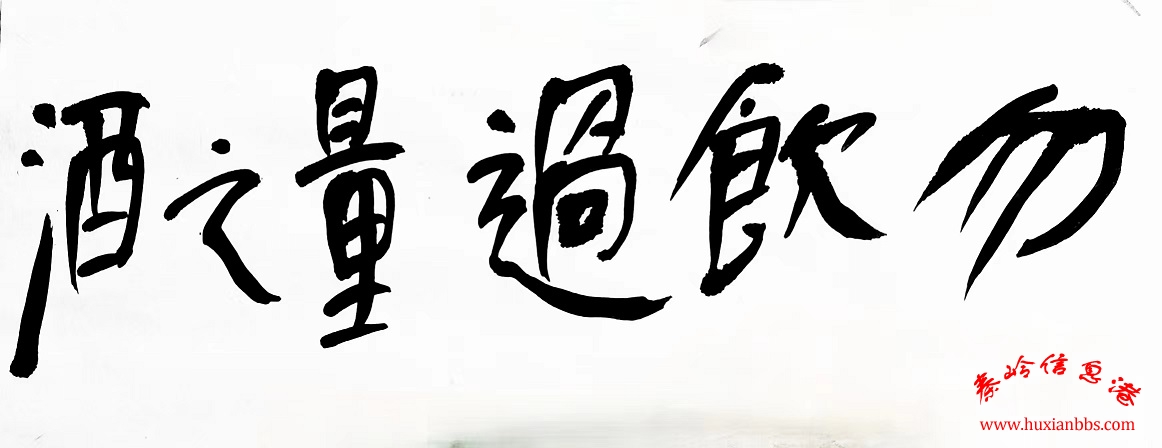 勿飲過量之酒
秦岭信息港
www.huxianbbs.com